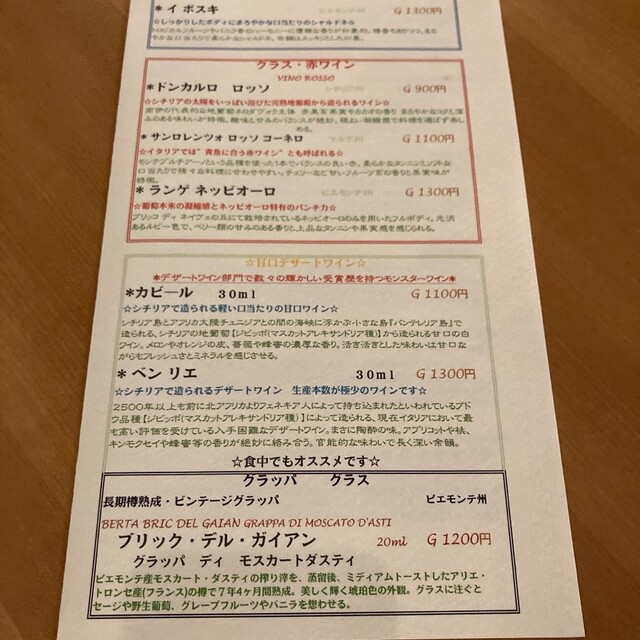 * イ ボスキ ピエモンテ州 G 1300円
☆しっかりしたボディにまろやかな口当たりのシャルドネ☆
グラス・赤ワイン
VINO ROSSO
*ドンカルロ ロッソ シチリア州 G 900円
☆シチリアの太陽をいっぱい浴びた完熟地葡萄から造られるワイン☆
*サンロレンツォ ロッソ コーネロ マルケ州 G 1100円
☆イタリアでは"青魚に合う赤ワイン"とも呼ばれる☆
モンテプルチアーノという品種を使った1本でバランスの良い赤。柔らかなタンニンとソフトな
口当たりで様々な料理に合わせやすい。チェリーなど甘いフルーツ系の香りと果実味が
特徴。
* ランゲ ネッビオーロ ピエモンテ州 G 1300円
☆葡萄本来の凝縮感とネッビオーロ特有のパンチ力☆
ブリッコ ディ ネイヴェの丘にて栽培されているネッビオーロのみを用いたフルボディ。光沢
あるルビー色で、ベリー類の甘みのある香りと、上品なタンニンや果実感を感じられる。
☆甘口デザートワイン☆
*デザートワイン部門で数々の輝かしい受賞歴を持つモンスターワイン*
*カビール 30ml G 1100円
☆シチリアで造られる軽い口当たりの甘口ワイン☆
シチリア島とアフリカ大陸チュニジアとの間の海峡に浮かぶ小さな島『パンテレリア島』で
造られる、シチリアの地葡萄【ジビッボ(マスカットアレキサンドリア種)】から造られる甘口の白
ワイン。メロンやオレンジの皮、薔薇や蜂蜜の濃厚な香り。活き活きとした味わいは甘口な
がらもフレッシュさとミネラルを感じさせる。
* ベン リエ 30ml G 1300円
☆シチリアで造られるデザートワイン 生産本数が極少のワインです☆
2500年以上も前に北アフリカよりフェネキア人によって持ち込まれたといわれているブド
ウ品種【ジビッボ(マスカットアレキサンドリア種)】によって造られる、現在イタリアにおいて最
も高い評価を受けている入手困難なデザートワイン。まさに陶酔の味。アプリコットや桃、
キンモクセイや蜂蜜等の香りが絶妙に絡み合う。官能的な味わいで長く深い余韻。
☆食中でもオススメです☆
グラッパ グラス
長期樽熟成・ビンテージグラッパ ピエモンテ州
BERTA BRIC DEL GAIAN GRAPPA DI MOSCATO D'ASTI
ブリック・デル・ガイアン 20ml G 1200円
グラッパ ディ モスカートダスティ
ピエモンテ産モスカート・ダスティの搾り滓を、蒸留後、ミディアムトーストしたアリエ・
トロンセ産(フランス)の樽で7年4ヶ月間熟成。美しく輝く琥珀色の外観。グラスに注ぐと
セージや野生葡萄、グレープフルーツやバニラを想わせる。